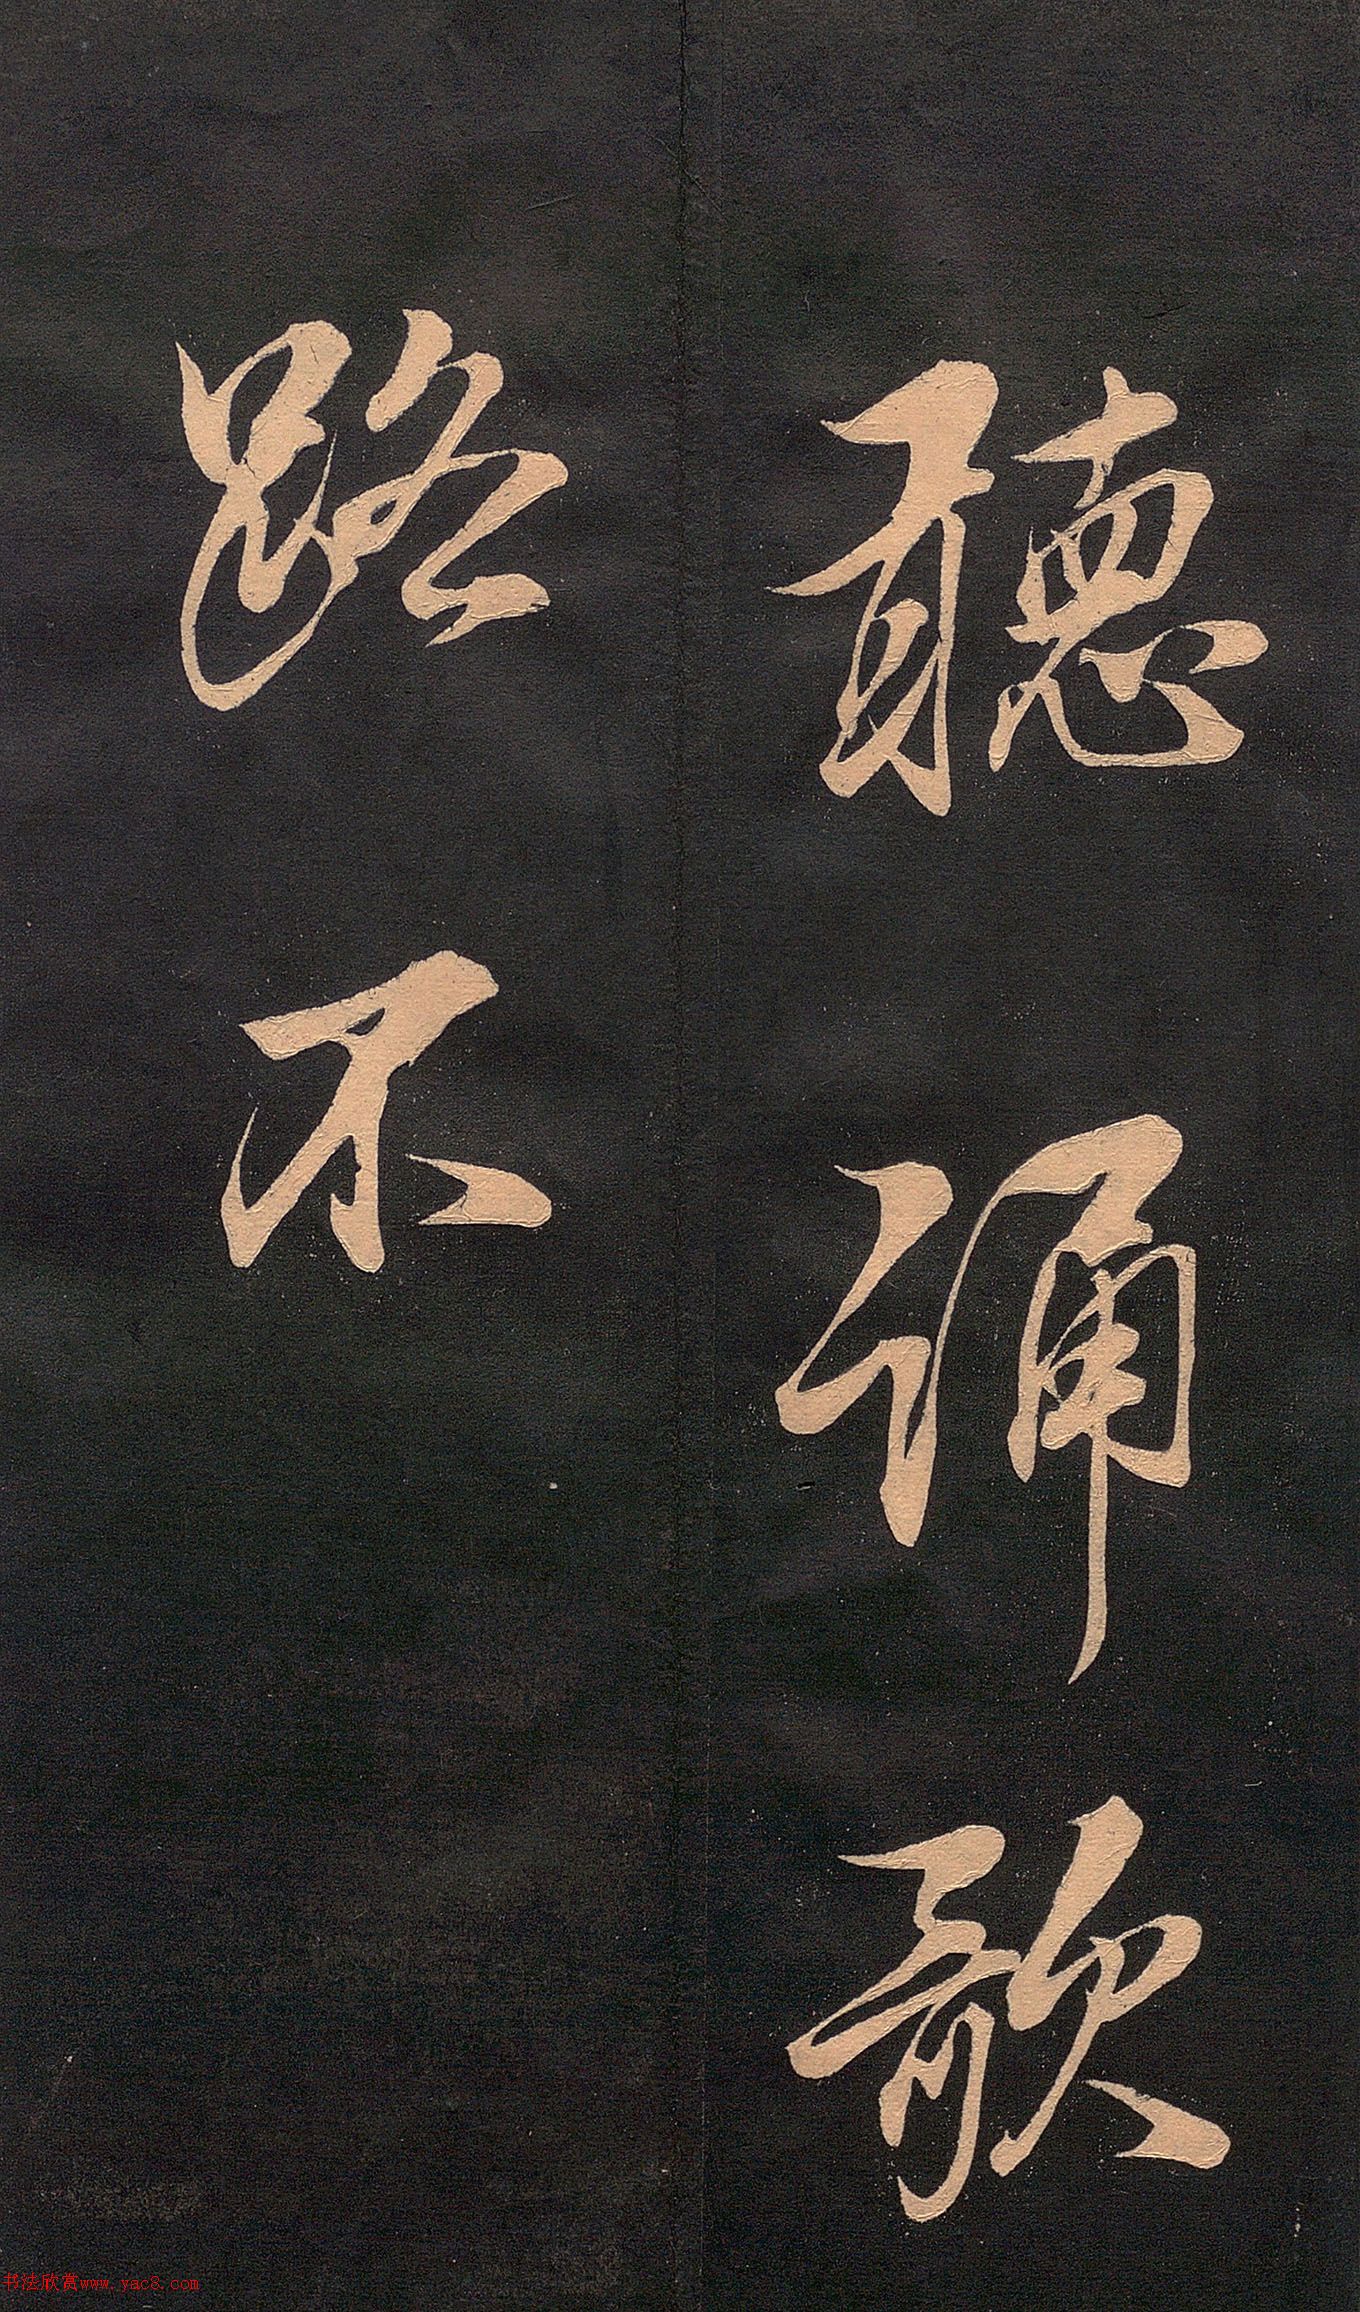 聽誦歌
路不
书法欣赏www.yac8.com